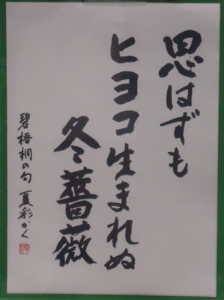 思はずも
ヒヨコ生まれぬ
冬薔薇
碧梧桐の句 夏彩かく